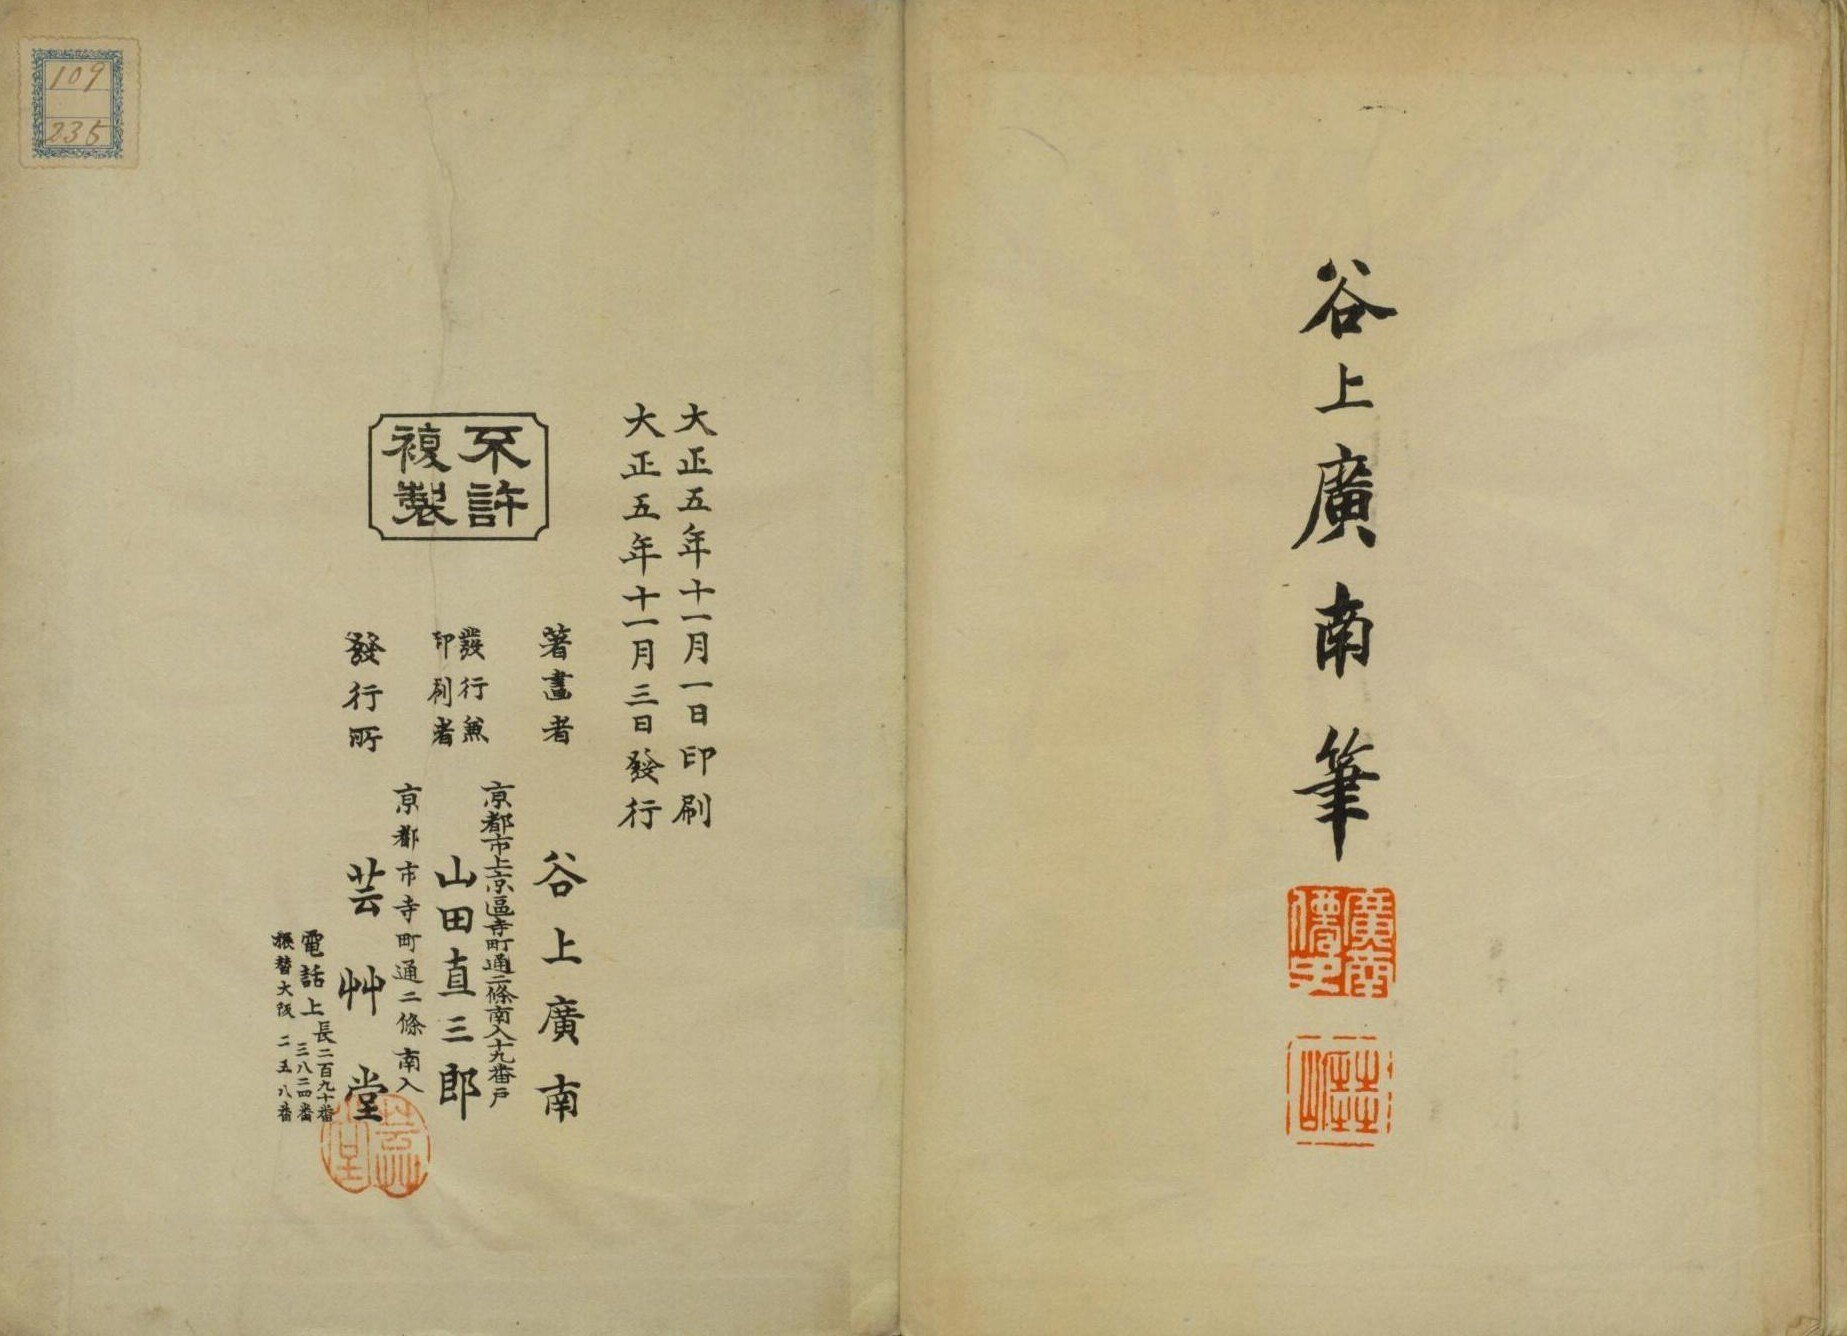 谷上廣南筆
大正五年十一月一日印刷
大正五年十一月三日發行
不許
複製
著畫者 谷上廣南
京都市上京區寺町通二條南入十九番戶
發行兼
印刷者 山田直三郎
京都市寺町通二條南入
發行所 芸艸堂
電話上 長二百九十番
三八二四番
振替大阪 二五八番
芸艸堂
109
235